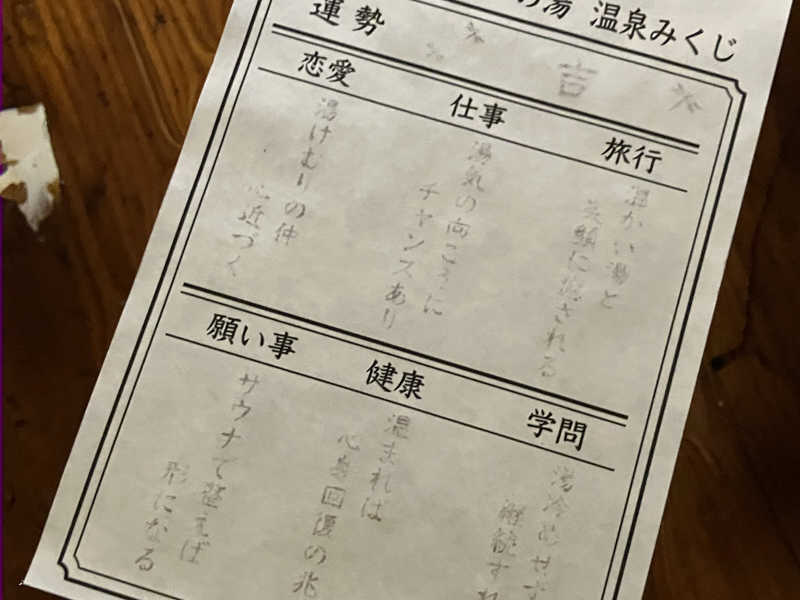 の湯 温泉みくじ
運勢
吉
旅行
温かい湯と
笑顔に癒される
仕事
湯気の向こうに
チャンスあり
恋愛
湯けむりの仲
心近づく
学問
湯冷めせず
継続すれ
健康
温まれば
心身回復の兆
願い事
サウナで整えば
形になる